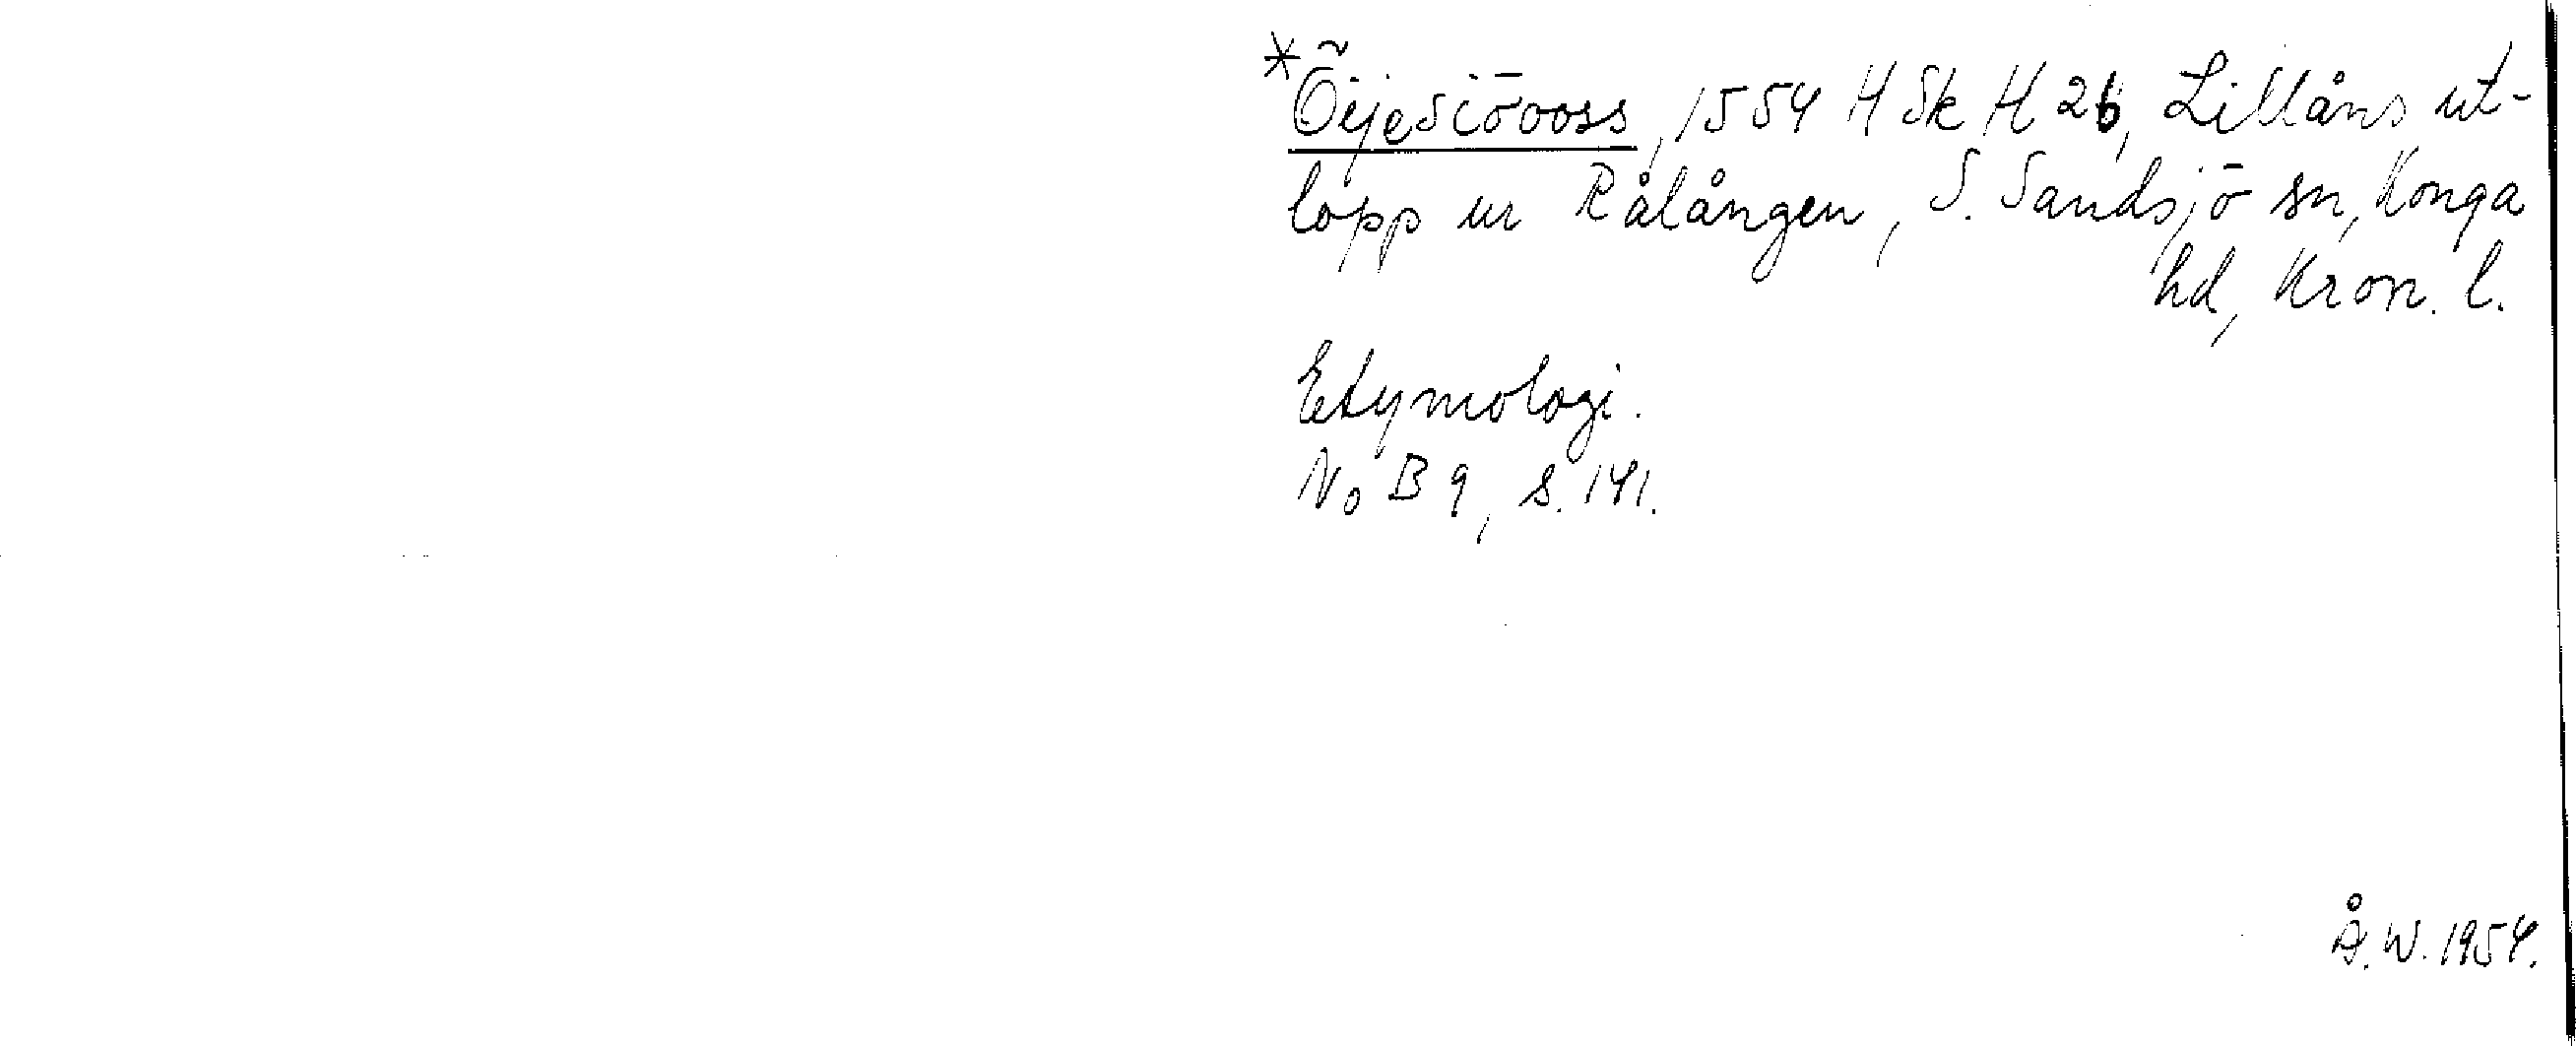 *Öijesiöooss, 1554 H Sk H 26, Lillåns ut-
lopp ur Rålången, S. Sandsjö sn, Konga
hd, Kron. l.
Etymologi.
No B 9, s. 141.
Å.W. 1954.